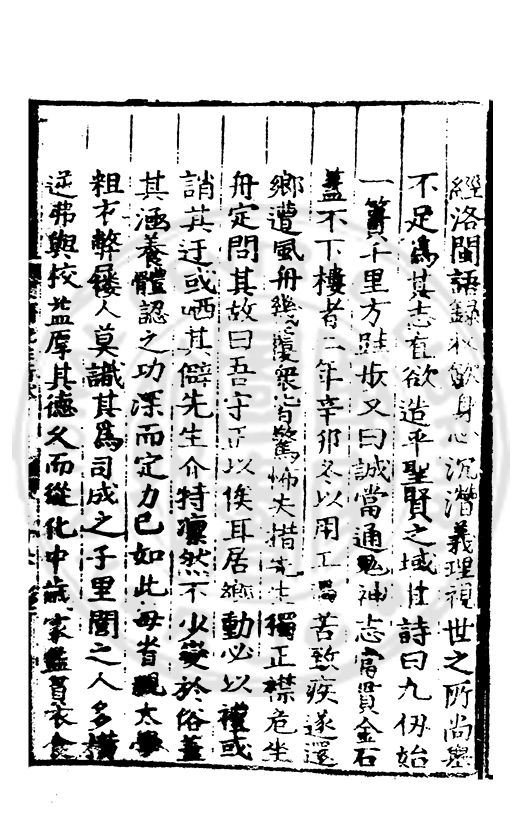 經洛閩語錄收斂身心沉潛義理視世之所尚舉
不足爲其志直欲造乎聖賢之域註詩曰九仞始
一簣千里方跬步又曰誠當通鬼神志當貫金石
蓋不下樓者二年辛卯冬以用工爲苦致疾遂還
鄉遭風舟幾覆衆皆驚怖失措先生獨正襟危坐
舟定問其故曰吾守正以俟耳居鄉動必以禮或
誚其迂或哂其僻先生介特凛然不少變於俗蓋
其涵養體認之功深而定力已如此每省親太學
粗衣弊屨人莫識其爲司成之子里閭之人多橫
逆弗與校益厚其德久而從化中歲家鑑貧衣食